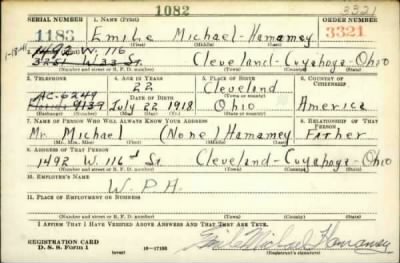 1082
3321
SERIAL NUMBER 1. NAME (Print) ORDER NUMBER
1183 Emilie Michael-Hamamey 3321
(First) (Middle) (Last)
1-18-41 1492 W. 116
3251 W 33 St. Cleveland-Cuyahoga-Ohio
(Number and street or R. F. D. number) (Town) (County) (State)
3. TELEPHONE 4. AGE IN YEARS 5. PLACE OF BIRTH 6. COUNTRY OF CITIZENSHIP
AC-6249 22 Cleveland
DATE OF BIRTH (Town or county)
Florida 9139 July 22 1918 Ohio America
(Exchange) (Number) (Mo.) (Day) (Yr.) (State or country)
7. NAME OF PERSON WHO WILL ALWAYS KNOW YOUR ADDRESS 8. RELATIONSHIP OF THAT PERSON
Mr. Michael (None) Hamamey Father
(Mr., Mrs., Miss) (First) (Middle) (Last)
9. ADDRESS OF THAT PERSON
1492 W. 116 St. Cleveland-Cuyahoga-Ohio
(Number and street or R. F. D. number) (Town) (County) (State)
10. EMPLOYER'S NAME
W.P.A.
11. PLACE OF EMPLOYMENT OR BUSINESS
(Number and street or R. F. D. number) (Town) (County) (State)
I AFFIRM THAT I HAVE VERIFIED ABOVE ANSWERS AND THAT THEY ARE TRUE.
REGISTRATION CARD
D. S. S. Form 1 (over) 16-17105 Emile Michael Hamamey
(Registrant's signature)